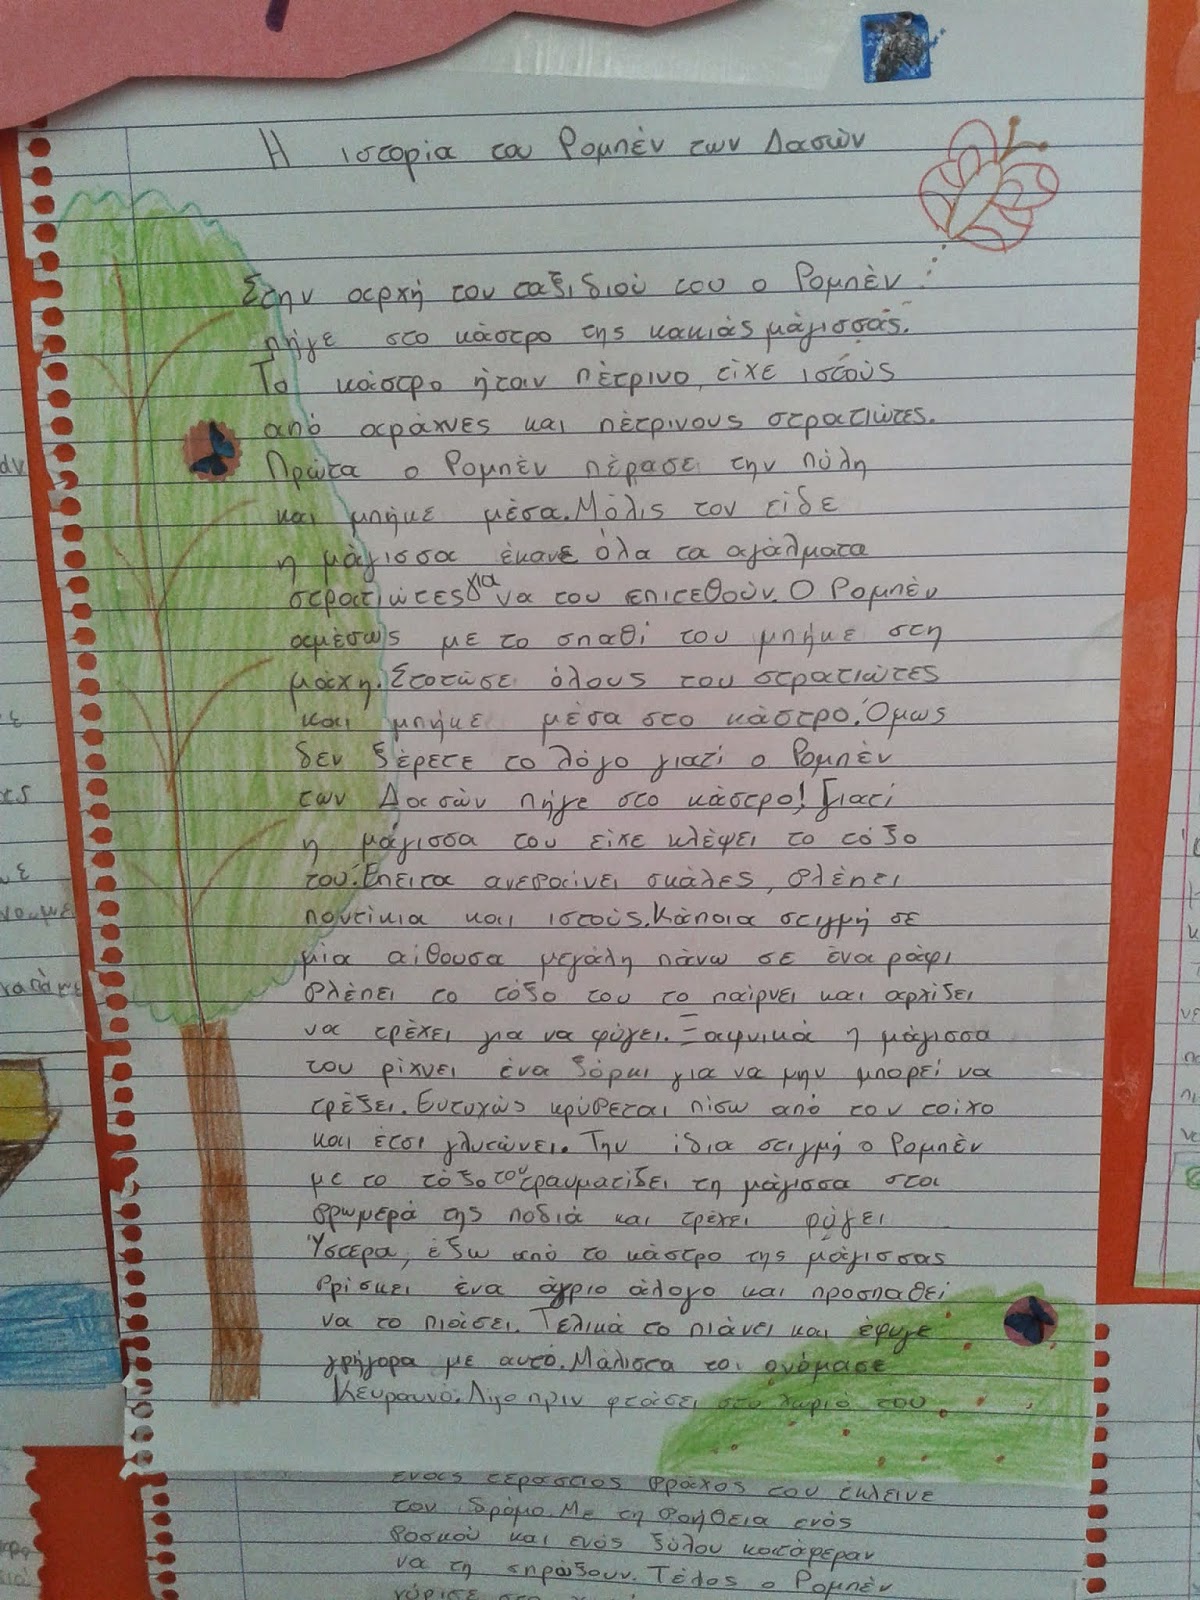 Η ιστορία του Ρομπέν των Δασών
Στην αρχή του ταξιδιού του ο Ρομπέν
πήγε στο κάστρο της κακιάς μάγισσας.
Το κάστρο ήταν πέτρινο, είχε ιστούς
από αράχνες και πέτρινους στρατιώτες.
Πρώτα ο Ρομπέν πέρασε την πύλη
και μπήκε μέσα. Μόλις τον είδε
η μάγισσα έκανε όλα τα αγάλματα
στρατιώτες για να του επιτεθούν. Ο Ρομπέν
αμέσως με το σπαθί του μπήκε στη
μάχη. Σκοτώσε όλους του στρατιώτες
και μπήκε μέσα στο κάστρο. Όμως
δεν ξέρετε το λόγο γιατί ο Ρομπέν
των Δασών πήγε στο κάστρο! Γιατί
η μάγισσα του είχε κλέψει το τόξο
του. Έπειτα ανεβαίνει σκάλες, βλέπει
ποντίκια και ιστούς. Κάποια στιγμή σε
μία αίθουσα μεγάλη πάνω σε ένα ράφι
βλέπει το τόξο του το παίρνει και αρχίζει
να τρέχει για να φύγει. Ξαφνικά η μάγισσα
του ρίχνει ένα ξόρκι για να μην μπορεί να
τρέξει. Ευτυχώς κρύβεται πίσω από τον τοίχο
και έτσι γλυτώνει. Την ίδια στιγμή ο Ρομπέν
με το τόξο του τραυματίζει τη μάγισσα στα
βρωμερά της ποδιά και τρέχει φύγει
Ύστερα, έξω από το κάστρο της μάγισσας
βρίσκει ένα άγριο άλογο και προσπαθεί
να το πιάσει. Τελικά το πιάνει και έφυγε
γρήγορα με αυτό. Μάλιστα το ονόμασε
Κεύραυνό. Λίγο πριν φτάσει στο χωριό του
ένας τεράστιος βράχος του έκλεινε
τον δρόμο. Με τη βοήθεια ενός
βοσκού και ενός ξύλου κατάφεραν
να τη σπρώξουν. Τέλος ο Ρομπέν
γύρισε στο